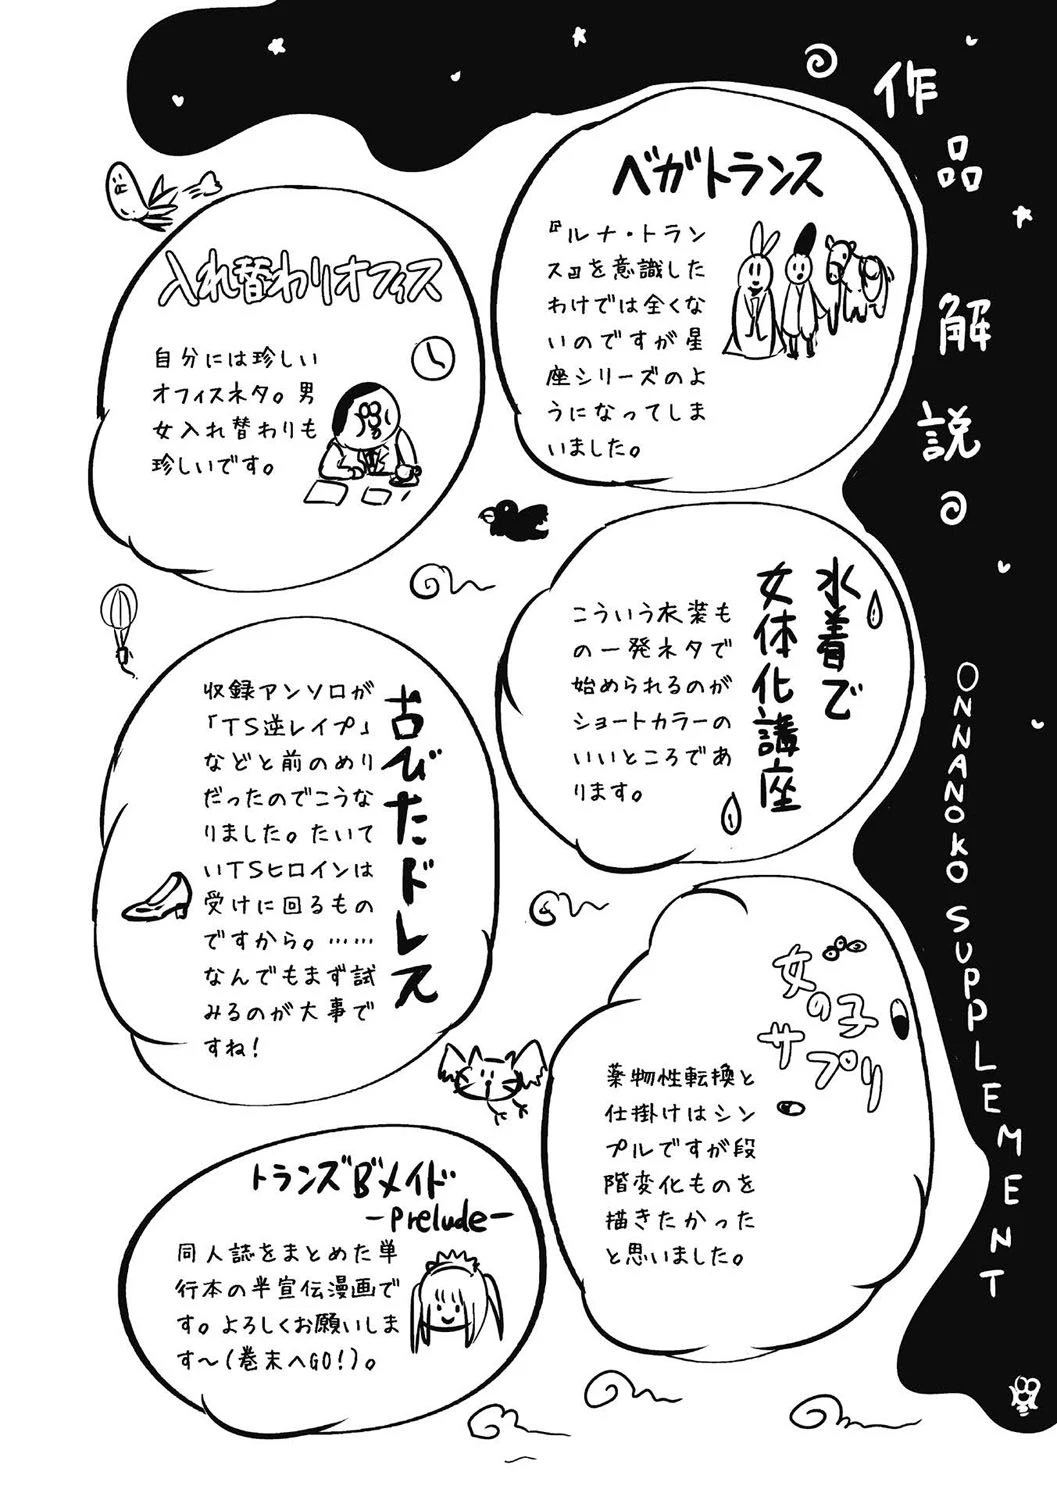 作品解説
ONNANOKO SUPPLEMENT
ベガトランス
『ルナ・トラン
ス』を意識した
わけでは全くな
いのですが星
座シリーズのよ
うになってしま
いました。
入れ替わりオフィス
自分には珍しい
オフィスネタ。男
女入れ替わりも
珍しいです。
水着で
女体化講座
こういう衣装も
の一発ネタで
始められるのが
ショートカラーの
いいところであ
ります。
古びたドレス
収録アンソロが
「TS逆レイプ」
などと前のめり
だったのでこうな
りました。たいて
いTSヒロインは
受けに回るもの
ですから。……
なんでもまず試
みるのが大事で
すね!
女の子
サプリ
薬物性転換と
仕掛けはシン
プルですが段
階変化ものを
描きたかった
と思いました。
トランズBメイド
-Prelude-
同人誌をまとめた単
行本の半宣伝漫画で
す。よろしくお願いしま
す～(巻末へGO!)。